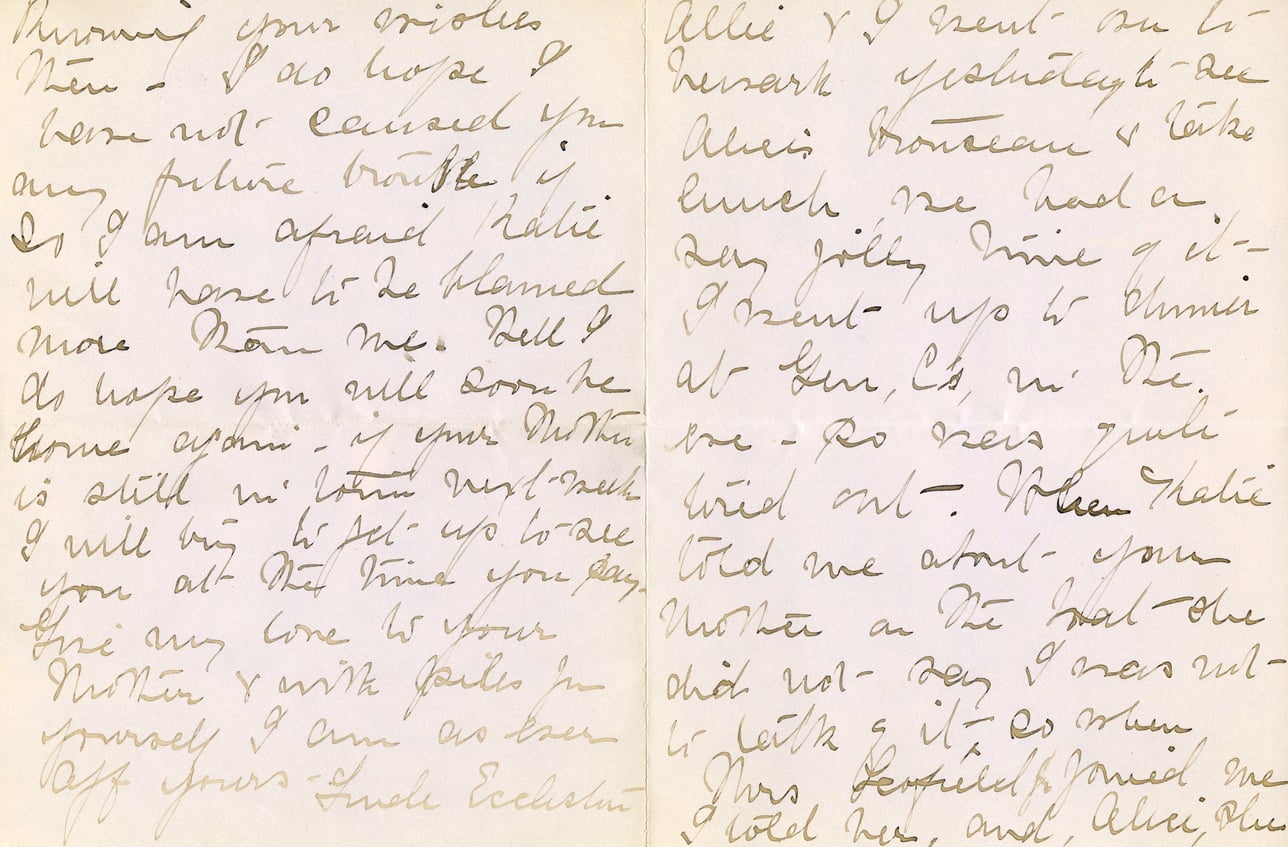 Knowing your wishes
then - I do hope I
have not caused you
any future trouble if
so I am afraid Katie
will have to be blamed
more than me. Well I
do hope you will soon be
home again - if your Mother
is still in town next week
I will try to get up to see
you at the time you say.
Give my love to your
Mother & with piles for
yourself I am as ever
aff yours - Linda Eccleston
Allie & I went on to
Newark yesterday to see
Alice's trouseau & take
lunch, we had a
very jolly time of it -
I went up to dinner
at Gen, C's, in the
eve - so was quite
tired out -. When Katie
told me about your
Mother on the boat she
did not say I was not
to talk of it, so when
Mrs Scofield joined me
I told her, and, Alice, she